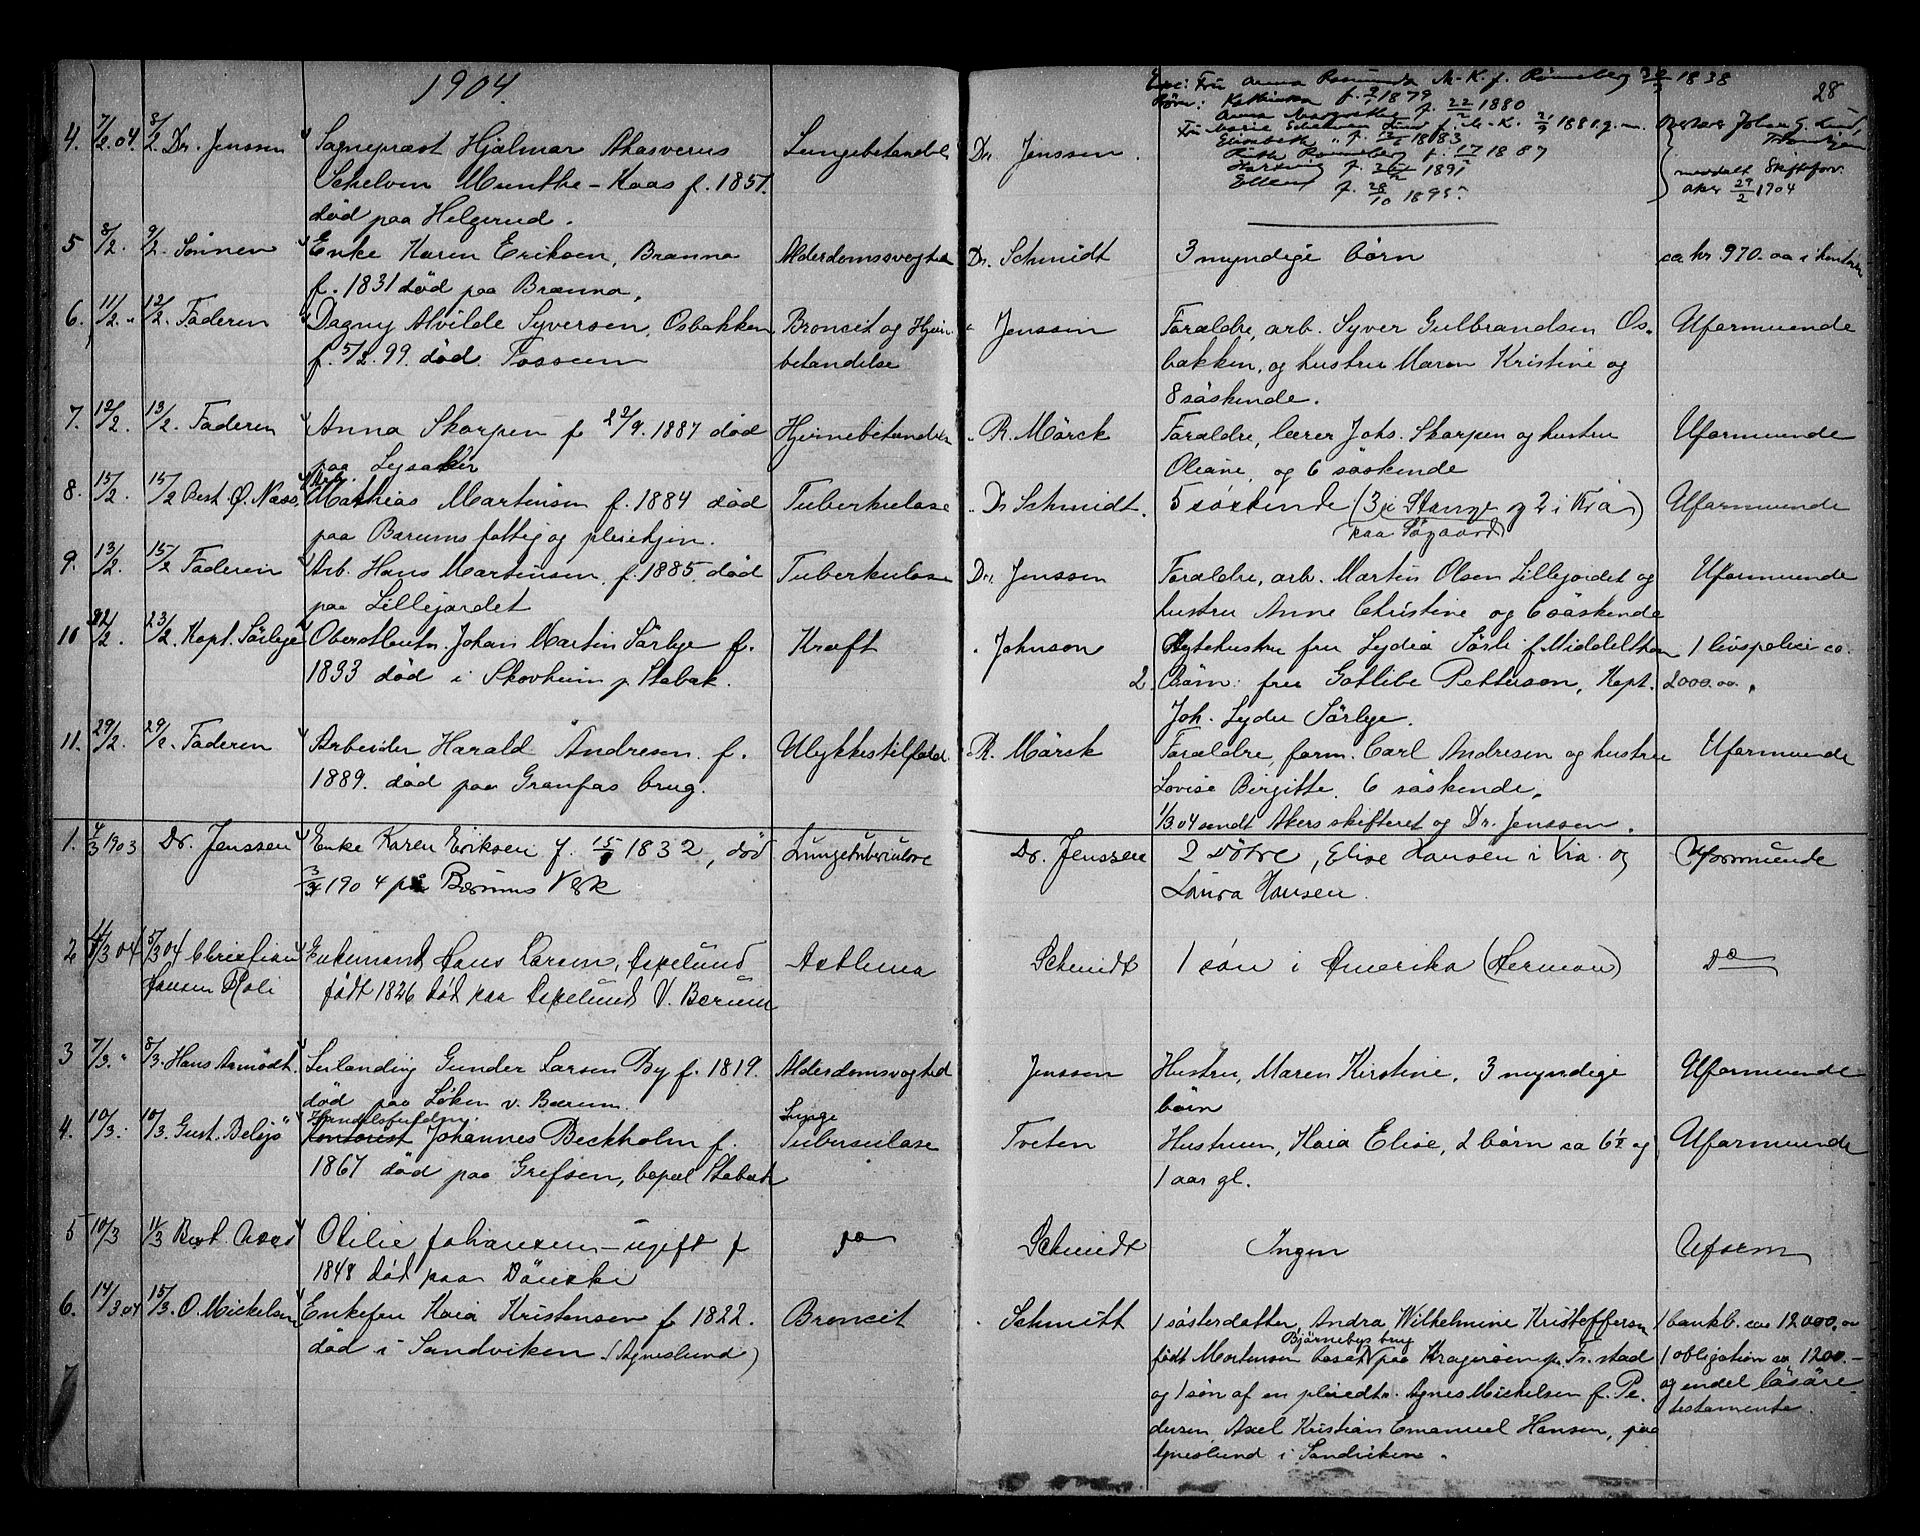 1904.
28
4. 7/2.04. 8/2. Dr. Jenssen Sognepræst Hjalmar Ahasverus Lungebetændel Dr. Jenssen.
Schelven Munthe-Kaas f. 1851.
død paa Helgerud.
Enke: Fru Anna Rosamunda M-K. f. Rønneberg 1838
Børn: Kathinka f. 1879
Anna Margrethe f. 22/2 1880
Fru Marie Schelven Lund f. M-K. 1881 g. m. Overlærer Johan G. Lund,
Elisabeth " f. 1883 Trondhjem
Ruth Rønneberg f. 17/ 1887
Hartvig f. 1891
Ellen f. 28/10 1895.
meddelt Skifteforv.
Aker 29/2 1904
5 8/2. 9/2. Sønnen Enke Karen Eriksen, Brænna Alderdomssvaghed Dr. Schmidt 3 myndige børn ca kr. 970.oo i
f. 1831 død paa Brænna.
6. 11/2. " 12/2. Faderen Dagny Alvilde Syversen, Osbakken Broncit og Hjerne " Jenssen Forældre, arb. Syver Gulbrandsen Os- Uformuende
f. 5/2.99. død. Fossum betændelse bakken, og hustru Maren Kristine og
8 søskende.
7. 12/2. 13/2. Faderen Anna Skorpen f 22/9. 1887 død Hjernebetændelse " R. Mørck Forældre, lærer Johs. Skorpen og hustru Uformuende
paa Lysaker Oleane, og 6 søskende
8. 15/2. 15/2 Best. Ø. Næss. Arb. Mathias Martinsen f. 1884 død Tuberkulose " Dr Schmidt. 5 søskende (3 i Stange og 2 i Kria) Uformuende
paa Bærums fattig og pleiehjem. paa Søgaard
9. 13/2. 15/2 Faderen Arb. Hans Martinsen, f. 1885, død Tuberkulose Dr. Jenssen Forældre, arb. Martin Olsen Lillejordet og Uformuende
paa Lillejordet hustru Anne Christine og 6 søskende
10 22/2. 23/2. Kapt. Sørbye Oberstløitn. Johan Martin Sørbye f. Kræft " Johnson Ægtehustru fru Lydia f. Middelthon 1 livspolice ca.
1833 død i Skovheim p. Stabæk. 2. Børn: fru Gotlibe Pettersen, Kapt. 2000.oo.
Joh. Lyder Sørbye.
11. 29/2. 29/2. Faderen Arbeider Harald Andresen. f. Ulykkestilfæld. R. Mørck Forældre, form. Carl Andresen og hustru Uformuende
1889. død paa Granfos brug. Lovise Birgitte. 6 søskende.
1/3.04 sendt Akers skifteret og Dr. Jenssen.
1. 4/3 1903 Dr. Jenssen Enke Karen Eriksen f. 15/ 1832, død Lungetuberculose Dr. Jenssen 2 Døtre, Elise Hansen i Kria. og Uformuende
3/3 1904 på Bærums Værk Laura Hansen.
2 4/3 04 5/3 04 Christian Enkemand Hans Larsen, Espelund Asthma Schmidt 1 søn i Amerika (Herman) Do
Hansen født 1826 død paa Espelund V. Bærum
3 7/3. " 8/3. Hans Armodt. Inlanding Gunder Larsen By f. 1819. Alderdomsvaghed Jenssen Hustru, Maren Kirstine, 3 myndige Uformuende
død paa Løken v. Bærum. børn
4. 10/3. 10/3. Gust. Belsjø Handelsfuldm. Kontorist Johannes Beckholm f. Lunge Tuberculose Tveten Hustruen, Kaia Elise, 2 børn ca 6½ og Uformuende
1867 død paa Grefsen, bopæl Stabæk 1 aar gl.
5 10/3 11/3 Best. Næss Otilie Johansen - ugift f Do Schmidt Ingen Uform
1848 død paa Dønski
6. 14/3 04 15/3. O. Mickelsen Enkefru Kaia Kristensen f 1822. Broncit " Schmitt 1 søsterdatter, Andra Wilhelmine Kristoffersen 1 bankb. ca 12000.oo
død i Sandviken (Agneslund) født Mortensen bosat Bjørnebys brug paa Kragerøen pr. Fr. stad 1 obligation ca 1200.-
og 1 søn af en pleiedtr. Agnes Mickelsen f. Pe- og endel løsøre
dersen, Axel Kristian Emanuel Hansen, paa testamente.
Agneslund i Sandviken.
7